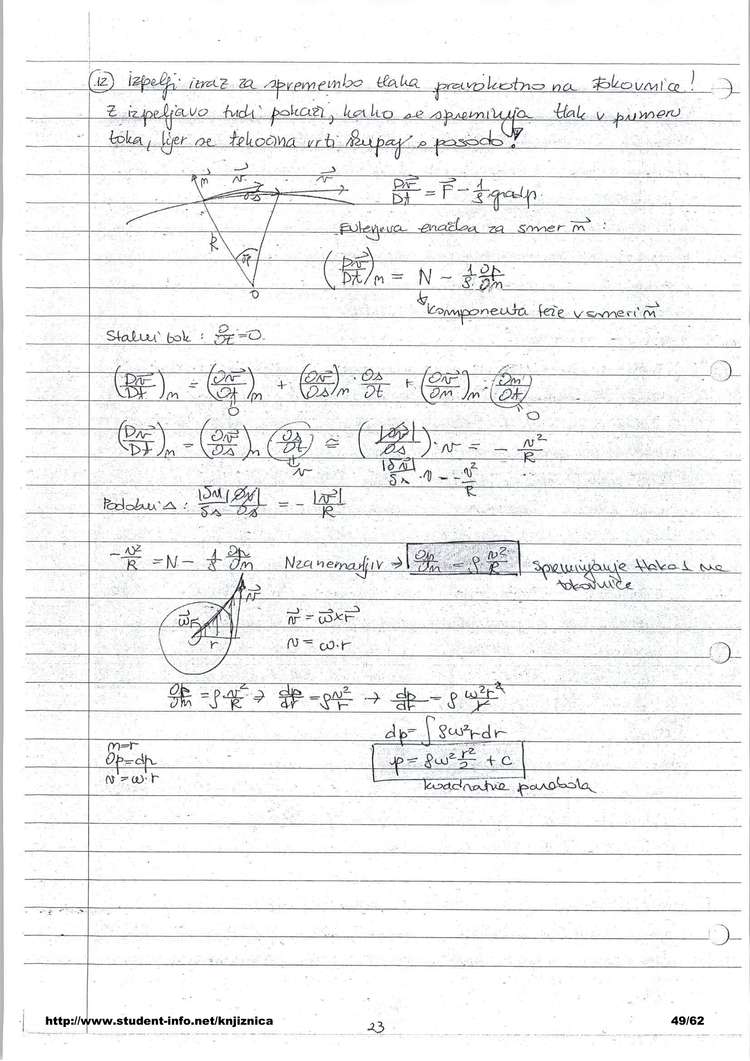 12) izpelji izraz za spremembo tlaka pravokotno na tokovnice!
Z izpeljavo tudi pokaži, kako se spreminja tlak v primeru
toka, kjer se tekočina vrti skupaj s posodo!
n→ v→ ∂s v→
R
O
Dv→/Dt = F→ - 1/ρ gradp.
Eulerjeva enačba za smer n→ :
(Dv→/Dt)n = N - 1/ρ ∂p/∂n
komponenta teže v smeri n→
Stalni tok : ∂/∂t = 0
(Dv→/Dt)n = (∂v→/∂t)n + (∂v→/∂s)n · ∂s/∂t + (∂v→/∂n)n · (∂n/∂t)
0 0
(Dv→/Dt)n = (∂v→/∂s)n (∂s/∂t) ≅ (|∂v|/∂s) · v = - v²/R
v |δv|/δs · v = - v²/R
Podobni Δ : = - |v→|/R
- v²/R = N - 1/ρ ∂p/∂n N zanemarljiv → ∂p/∂n = ρ v²/R spreminjanje tlaka ⊥ na
tokovnice
ω→ r v→
v→ = ω→ x r→
v = ω·r
∂p/∂n = ρ · v²/R → dp/dr = ρ v²/r → dp/dr = ρ ω²r²/r
dp = ∫ ρω²rdr
n=r
∂p=dp
v=ω·r
p = ρω² r²/2 + C
kvadratna parabola
http://www.student-info.net/knjiznica
23
49/62